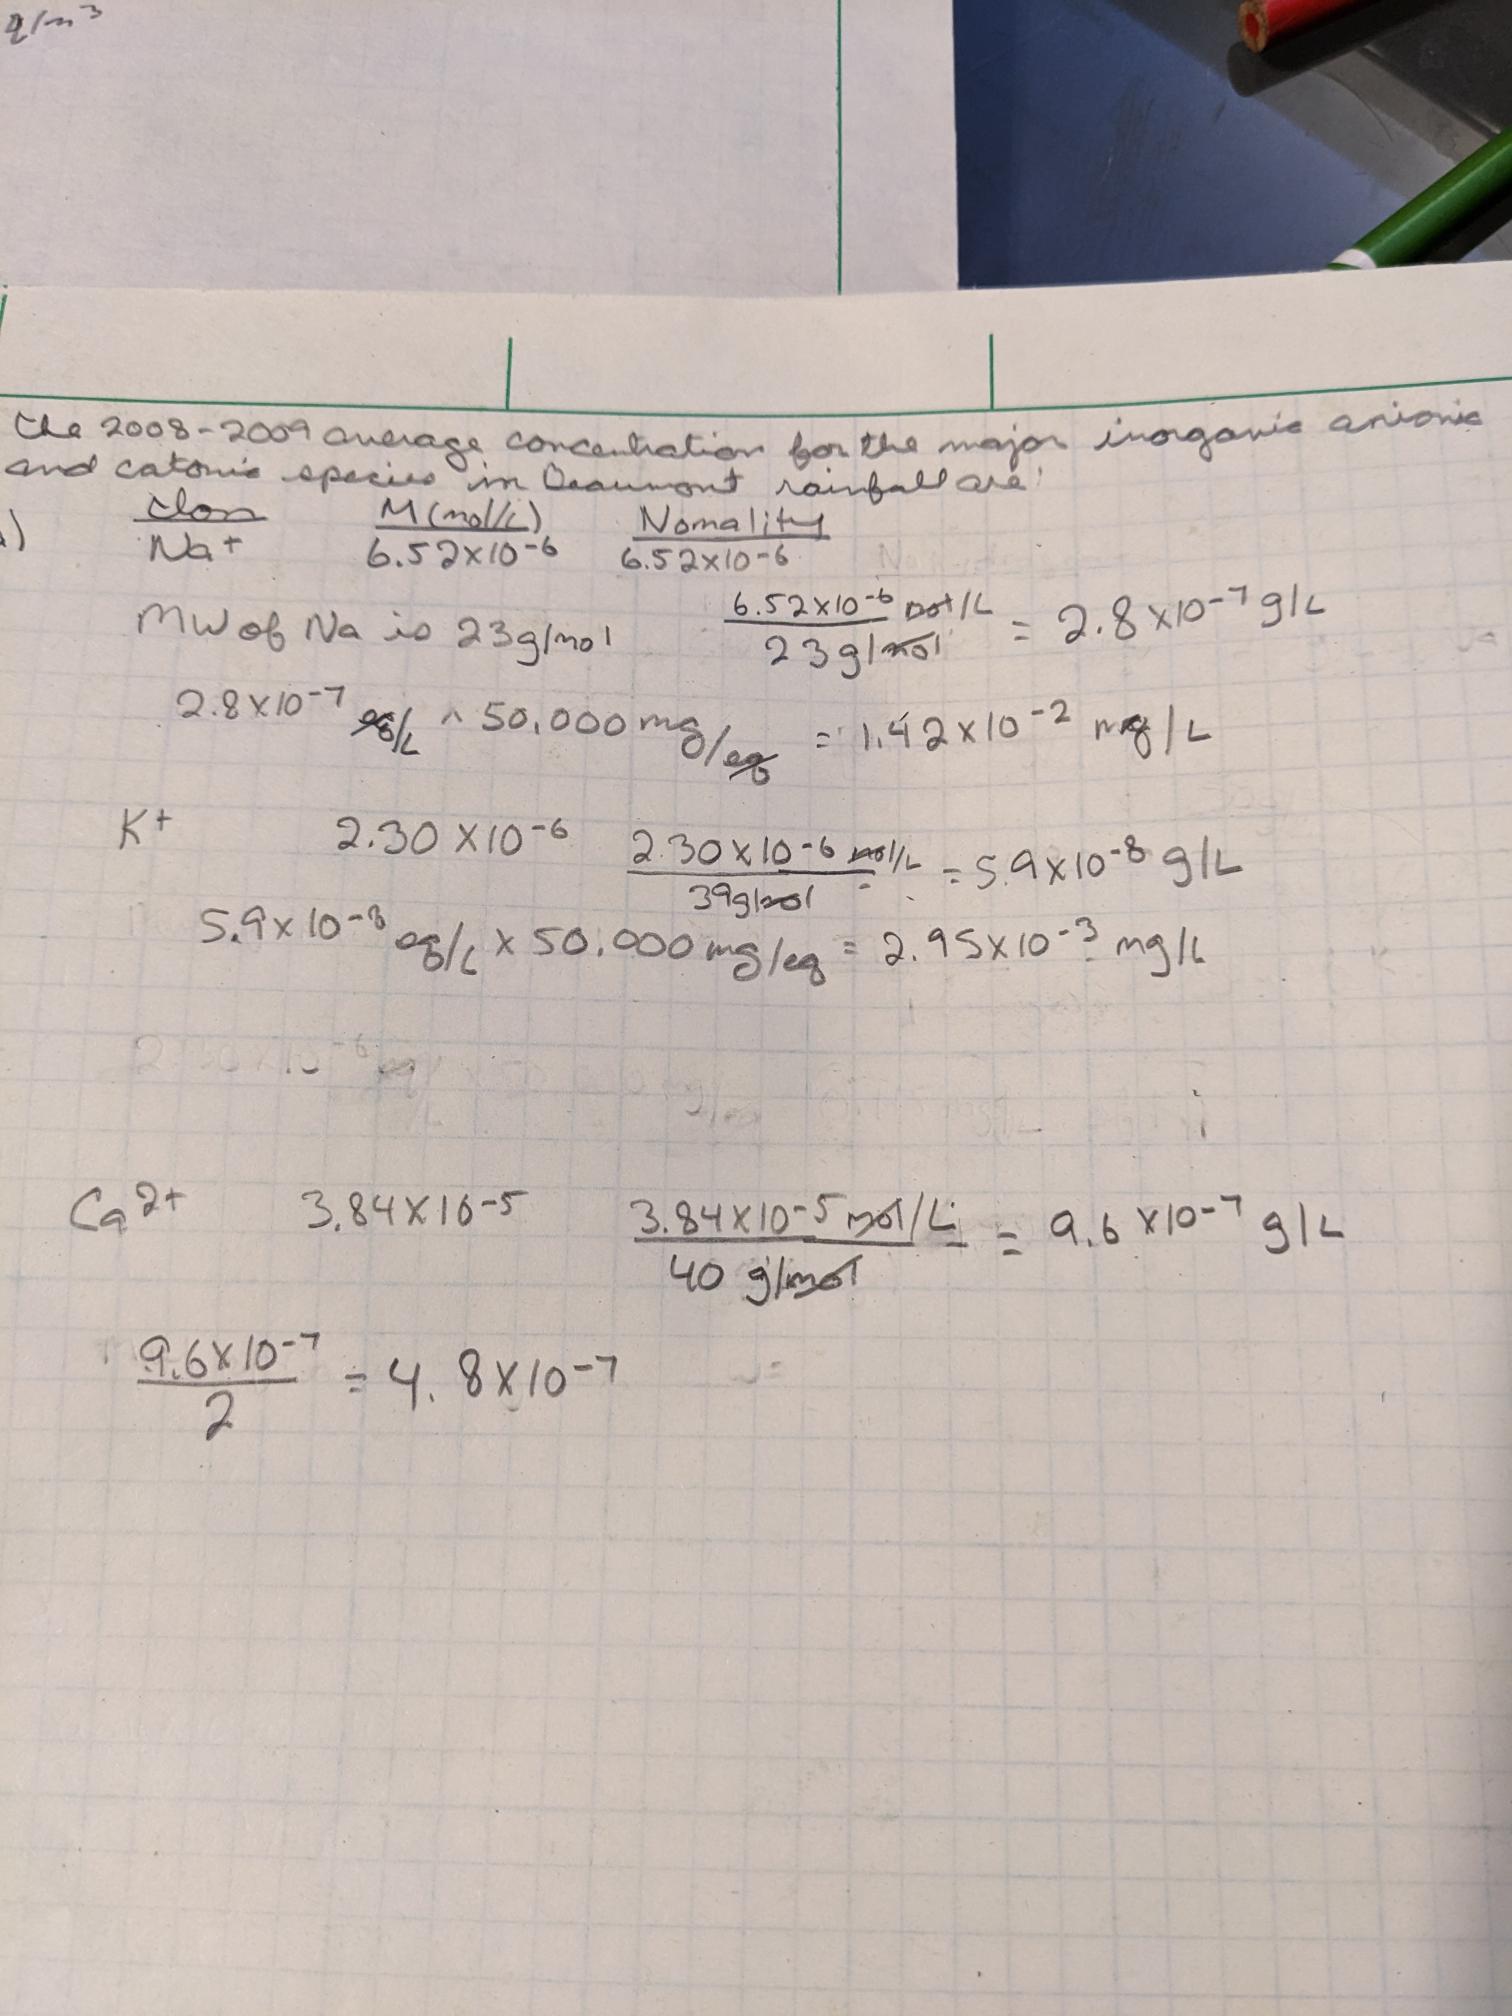 g/m³
the 2008-2009 average concentration for the major inorganic anionic
and catonic species in Beaumont rainfall are:
Ion M (mol/L) Nomality
Na+ 6.52x10-6 6.52x10-6
MW of Na is 23g/mol 6.52x10-6 mol/L / 23g/mol = 2.8x10-7 g/L
2.8x10-7 eq/L x 50,000mg/eq = 1.42x10-2 mg/L
K+ 2.30x10-6 2.30x10-6 mol/L / 39g/mol = 5.9x10-8 g/L
5.9x10-8 eq/L x 50,000mg/eq = 2.95x10-3 mg/L
Ca2+ 3.84x10-5 3.84x10-5 mol/L / 40 g/mol = 9.6x10-7 g/L
9.6x10-7 / 2 = 4.8x10-7